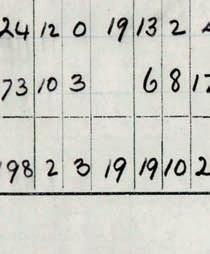 24 12 0 19 13 2
73 10 3 6 8 17
198 2 3 19 19 10 2